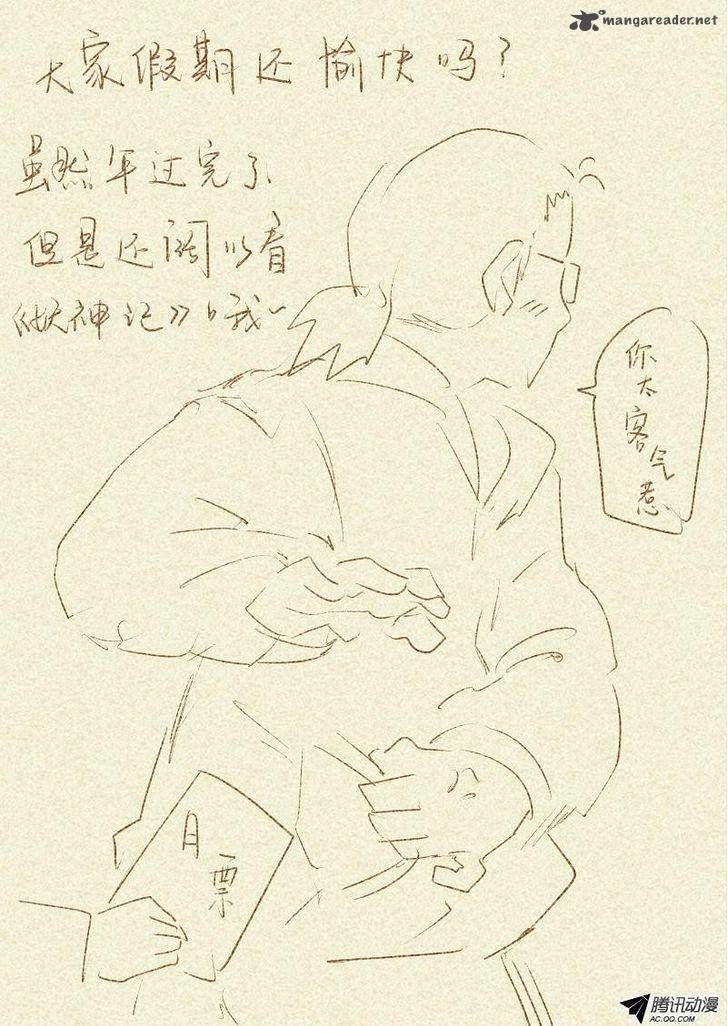 mangareader.net
大家假期还愉快吗?
虽然年过完了
但是还可以看
《妖神记》哦~
你太客气惹
月票
腾讯动漫
AC.QQ.COM